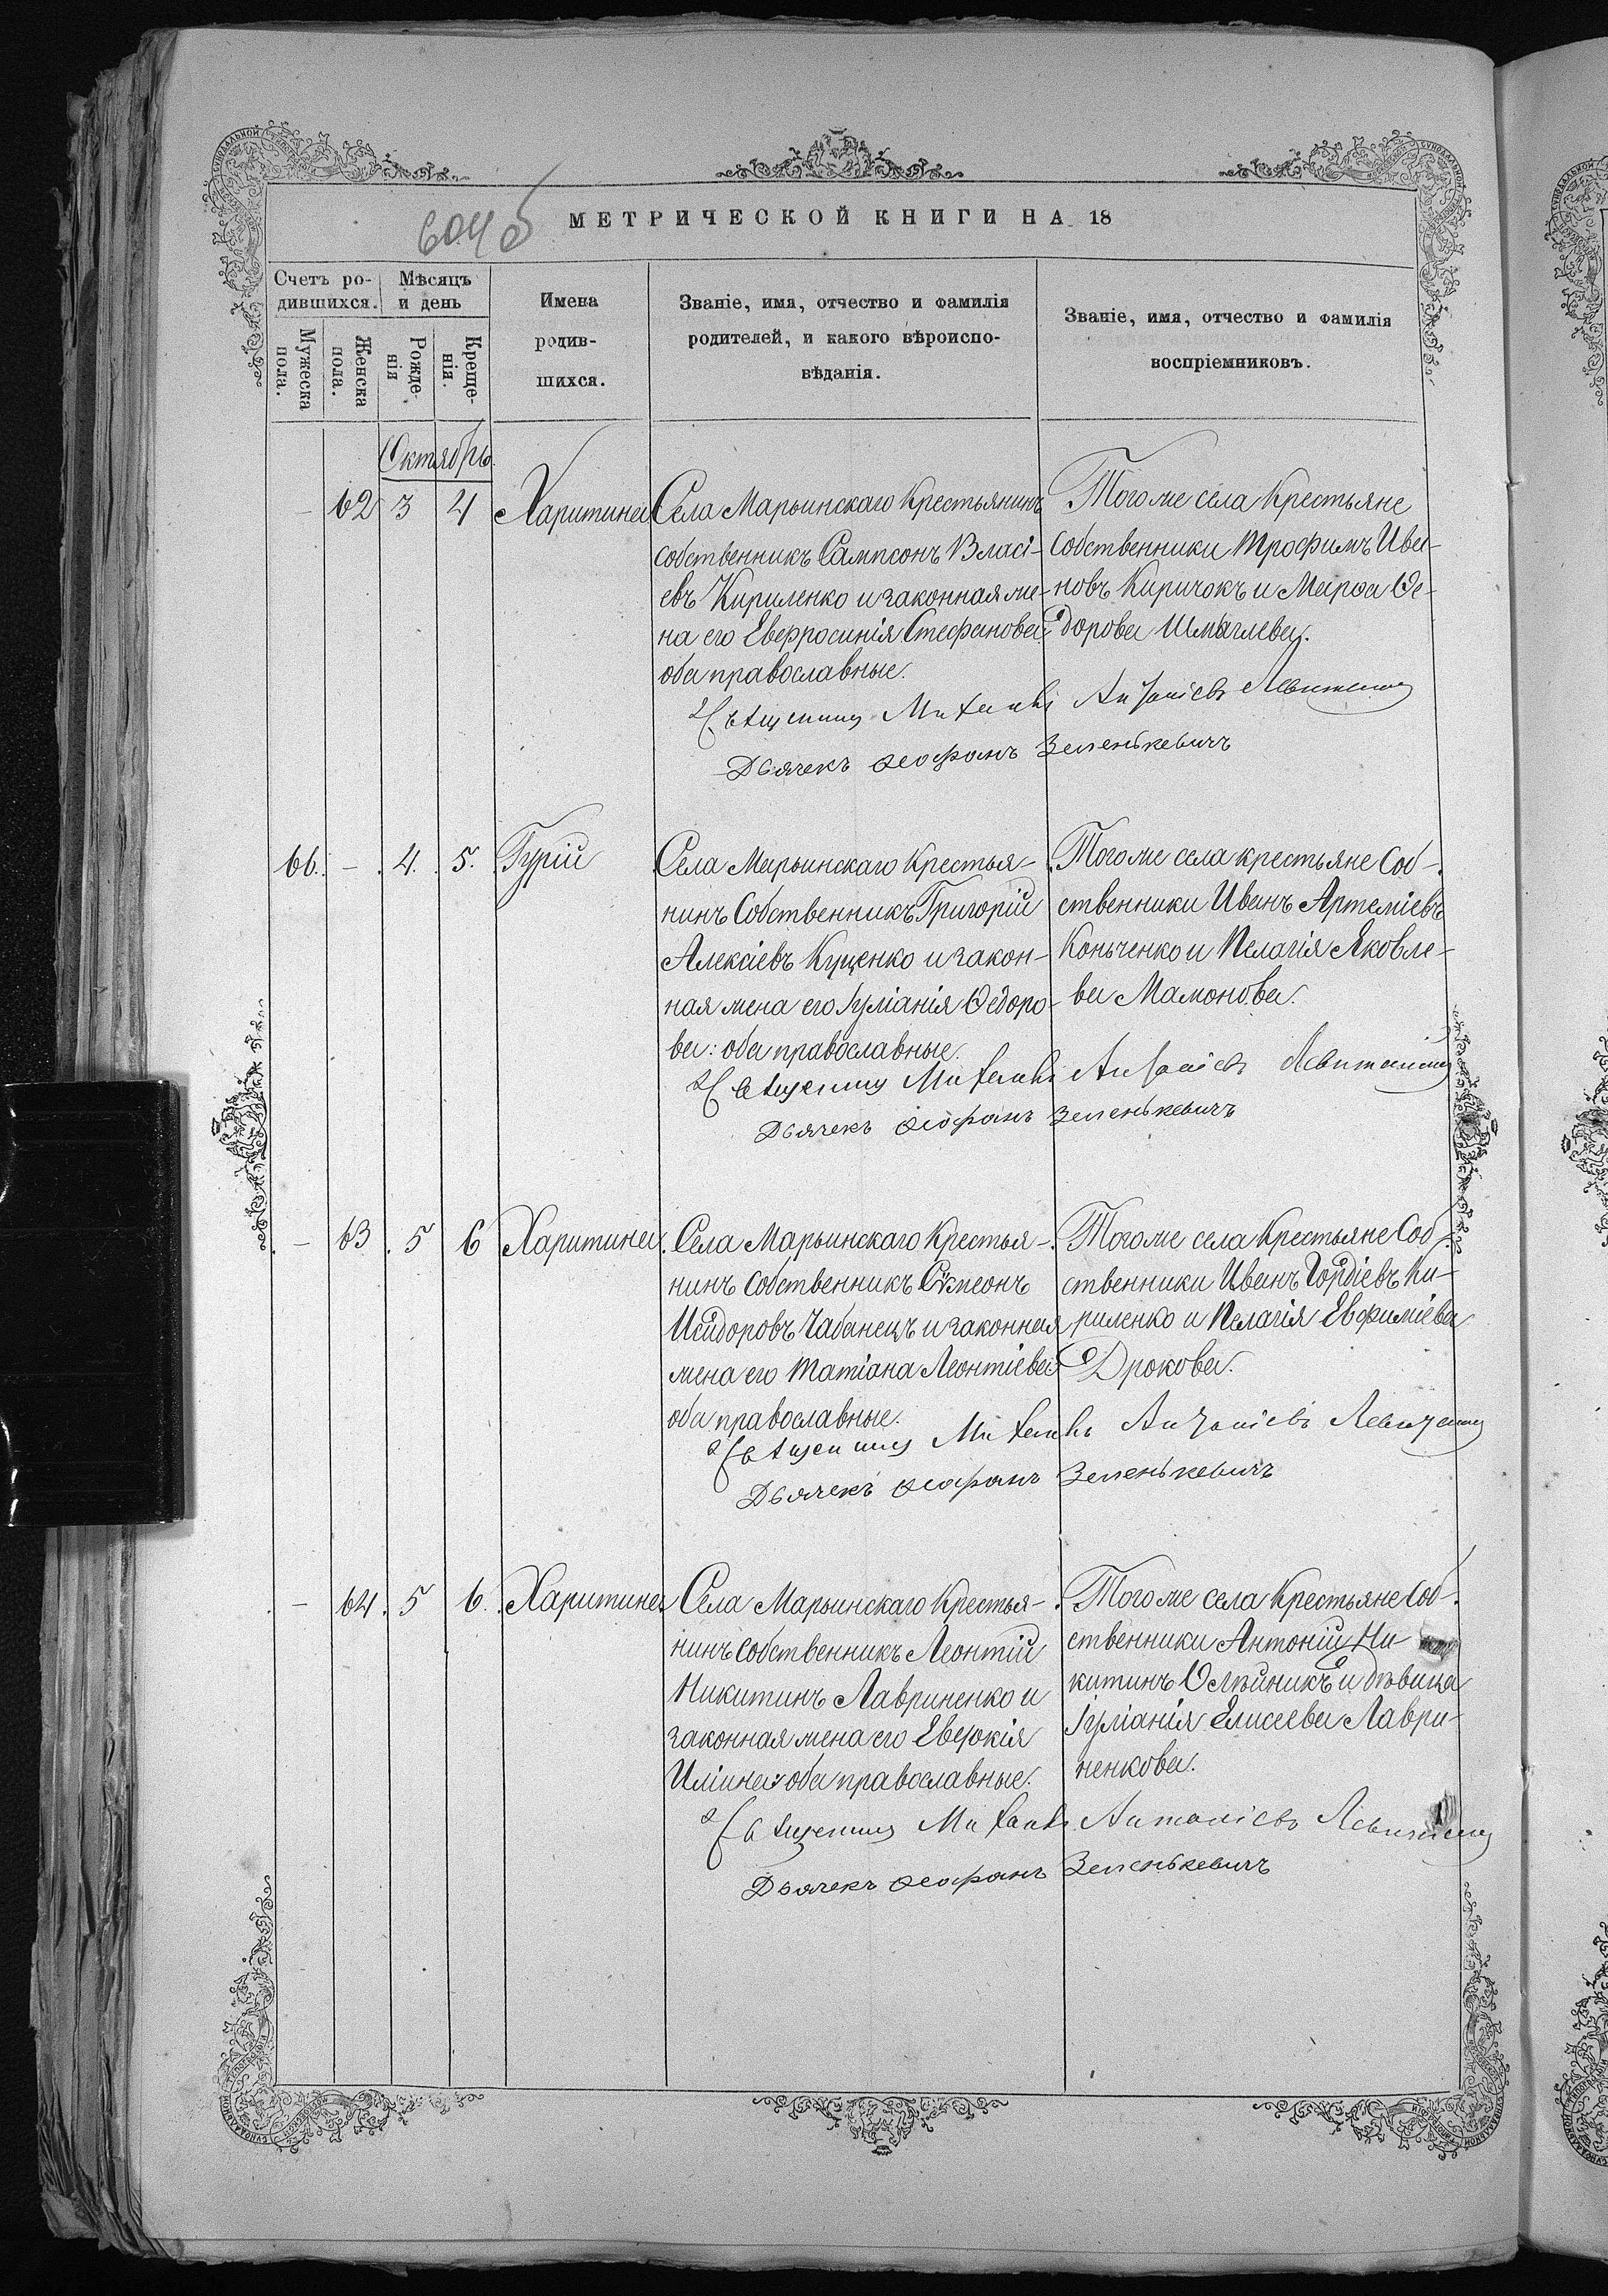 604 об
МЕТРИЧЕСКОЙ КНИГИ НА 18
Счетъ ро-
дившихся.
Мужеска
пола.
Женска
пола.
Мѣсяцъ
и день
Рожде-
нія
Креще-
нія.
Имена
родив-
шихся.
Званіе, имя, отчество и фамилія
родителей, и какого вѣроиспо-
вѣданія.
Званіе, имя, отчество и фамилія
воспріемниковъ.
Октябрь.
- 62 3 4 Харитина
Села Марьинскаго Крестьянинъ
собственникъ Сампсонъ Власі-
евъ Кириленко и законная же-
на его Евфросинія Стефанова:
оба православные.
Тогоже села Крестьяне
Собственники Трофимъ Ива-
новъ Киричокъ и Марѳа Ѳе-
дорова Шмыглева.
Священникъ Михаилъ Антоніевъ Левитскій
Дьячекъ Ѳеофанъ Зеленькевичъ
66. - 4. 5. Гурій
Села Марьинскаго Крестья-
нинъ Собственникъ Григорій
Алексіевъ Куценко и закон-
ная жена его Іуліанія Ѳедоро-
ва: оба православные.
Тогоже села крестьяне Соб-
ственники Иванъ Артеміевъ
Коньченко и Пелагія Яковле-
ва Мамонова.
Священникъ Михаилъ Антоніевъ Левитскій
Дьячекъ Ѳеофанъ Зеленькевичъ
- 63. 5 6 Харитина
Села Марьинскаго Крестья-
нинъ собственникъ Сѵмеонъ
Исидоровъ Чабанецъ и законная
жена его Татіана Леонтіева:
оба православные.
Тогоже села Крестьяне Соб-
ственники Иванъ Гордіевъ Ки-
риленко и Пелагія Евфиміева
Дрокова.
Священникъ Михаилъ Антоніевъ Левитскій
Дьячекъ Ѳеофанъ Зеленькевичъ
- 64. 5 6. Харитина
Села Марьинскаго Крестья-
нинъ собственникъ Леонтій
Никитинъ Лавриненко и
законная жена его Евдокія
Иліина: оба православные.
Тогоже села Крестьяне Соб-
ственники Антоній Ни-
китинъ Олѣйникъ и дѣвица
Іуліанія Елисеева Лаври-
ненкова.
Священникъ Михаилъ Антоніевъ Левитскій
Дьячекъ Ѳеофанъ Зеленькевичъ